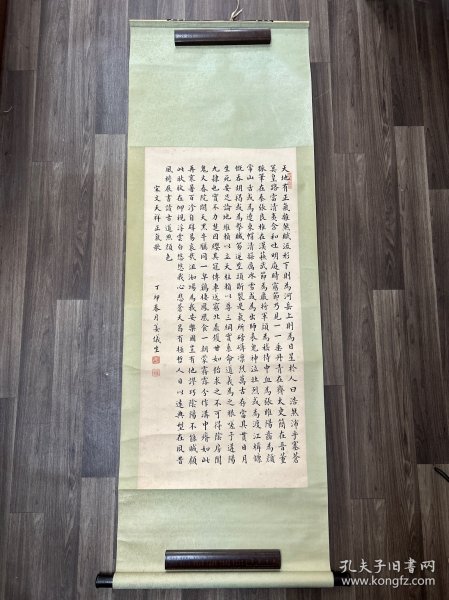 天地有正氣雜然賦流形下則為河岳上則為日星於人曰浩然沛乎塞蒼
冥皇路當清夷含和吐明庭時窮節乃見一一垂丹青在齊太史簡在晉董
狐筆在秦張良椎在漢蘇武節為嚴將軍頭為嵇侍中血為張睢陽齒為顏
常山舌或為遼東帽清操厲冰雪或為出師表鬼神泣壯烈或為渡江楫慷
慨吞胡羯或為擊賊笏逆豎頭破裂是氣所磅礴凛烈萬古存當其貫日月
生死安足論地維賴以立天柱賴以尊三綱實系命道義為之根嗟予遘陽
九隸也實不力楚囚纓其冠傳車送窮北鼎鑊甘如飴求之不可得陰房闃
鬼火春院閟天黑牛驥同一皁雞棲鳳凰食一朝蒙霧露分作溝中瘠如此
再寒暑百沴自辟易哀哉沮洳場為我安樂國豈有他繆巧陰陽不能賊顧
此耿耿在仰視浮雲白悠悠我心悲蒼天曷有極哲人日以遠典型在夙昔
風檐展書讀古道照顏色
宋文天祥正氣歌
丁卯春月姜儀生
孔夫子旧书网
www.kongfz.com